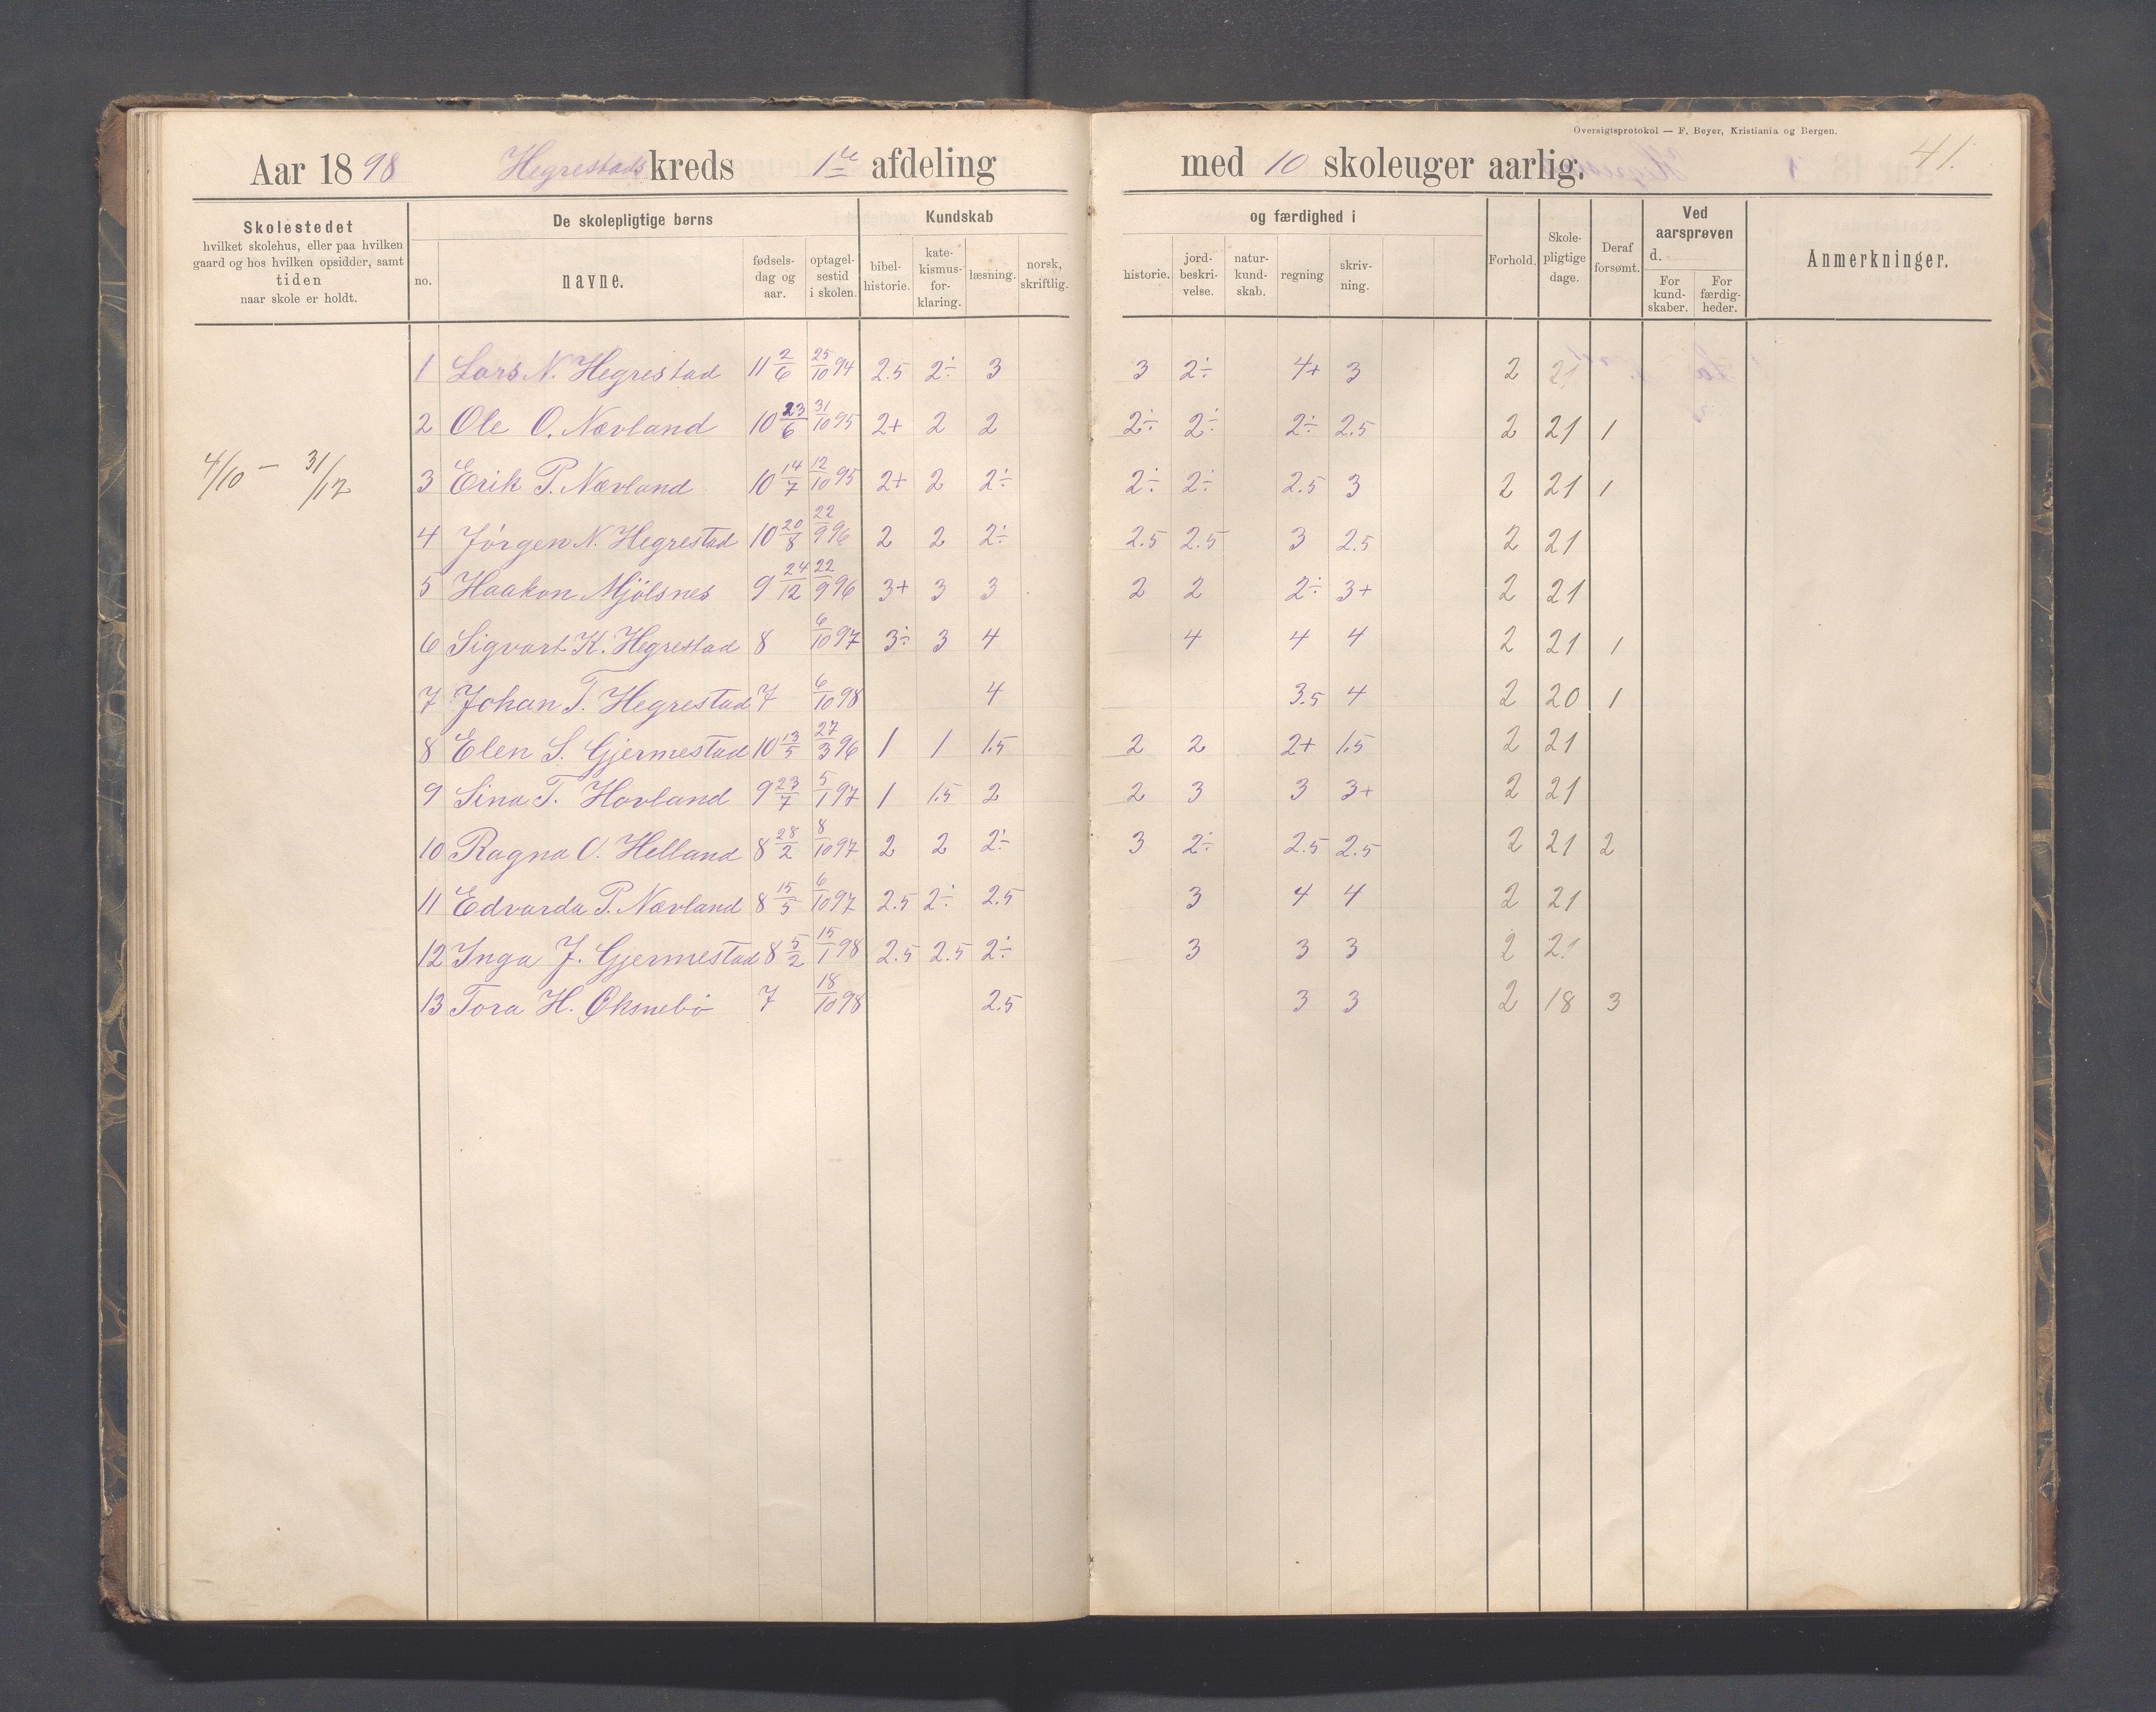 Oversigtsprotokol — F. Beyer, Kristiania og Bergen.
41.
Aar 1898 Hegrestads kreds 1ste afdeling med 10 skoleuger aarlig.
Skolestedet hvilket skolehus, eller paa hvilken gaard og hos hvilken opsidder, samt tiden naar skole er holdt.
De skolepligtige børns
no. navne. fødsels-dag og aar. optagel-sestid i skolen.
Kundskab og færdighed i
bibel-historie. kate-kismus-for-klaring. læsning. norsk, skriftlig. historie. jord-beskri-velse. natur-kund-skab. regning skriv-ning.
Forhold. Skole-pligtige dage. Deraf forsømt.
Ved aarsprøven d.
For kund-skaber. For færdig-heder.
Anmerkninger.
1 Lars N. Hegrestad 11 2/6 25/10 94 2.5 2÷ 3 3 2÷ 4+ 3 2 21
2 Ole O. Nævland 10 23/6 31/10 95 2+ 2 2 2÷ 2÷ 2÷ 2.5 2 21 1
4/10 – 31/12
3 Erik P. Nævland 10 14/7 12/10 95 2+ 2 2÷ 2÷ 2÷ 2.5 3 2 21 1
4 Jörgen N. Hegrestad 10 20/8 22/9 96 2 2 2÷ 2.5 2.5 3 2.5 2 21
5 Haakon Mjölsnes 9 24/12 22/9 96 3+ 3 3 2 2 2÷ 3+ 2 21
6 Sigvart K. Hegrestad 8 6/10 97 3÷ 3 4 4 4 4 2 21 1
7 Johan T. Hegrestad 7 6/10 98 4 3.5 4 2 20 1
8 Elen S. Gjermestad 10 13/5 27/3 96 1 1 1.5 2 2 2+ 1.5 2 21
9 Sina T. Hovland 9 23/7 5/1 97 1 1.5 2 2 3 3 3+ 2 21
10 Ragna O. Helland 8 28/2 8/10 97 2 2 2÷ 3 2÷ 2.5 2.5 2 21 2
11 Edvarda P. Nævland 8 15/5 6/10 97 2.5 2÷ 2.5 3 4 4 2 21
12 Inga J. Gjermestad 8 5/2 15/1 98 2.5 2.5 2÷ 3 3 3 2 21
13 Tora H. Øksnebö 7 18/10 98 2.5 3 3 2 18 3